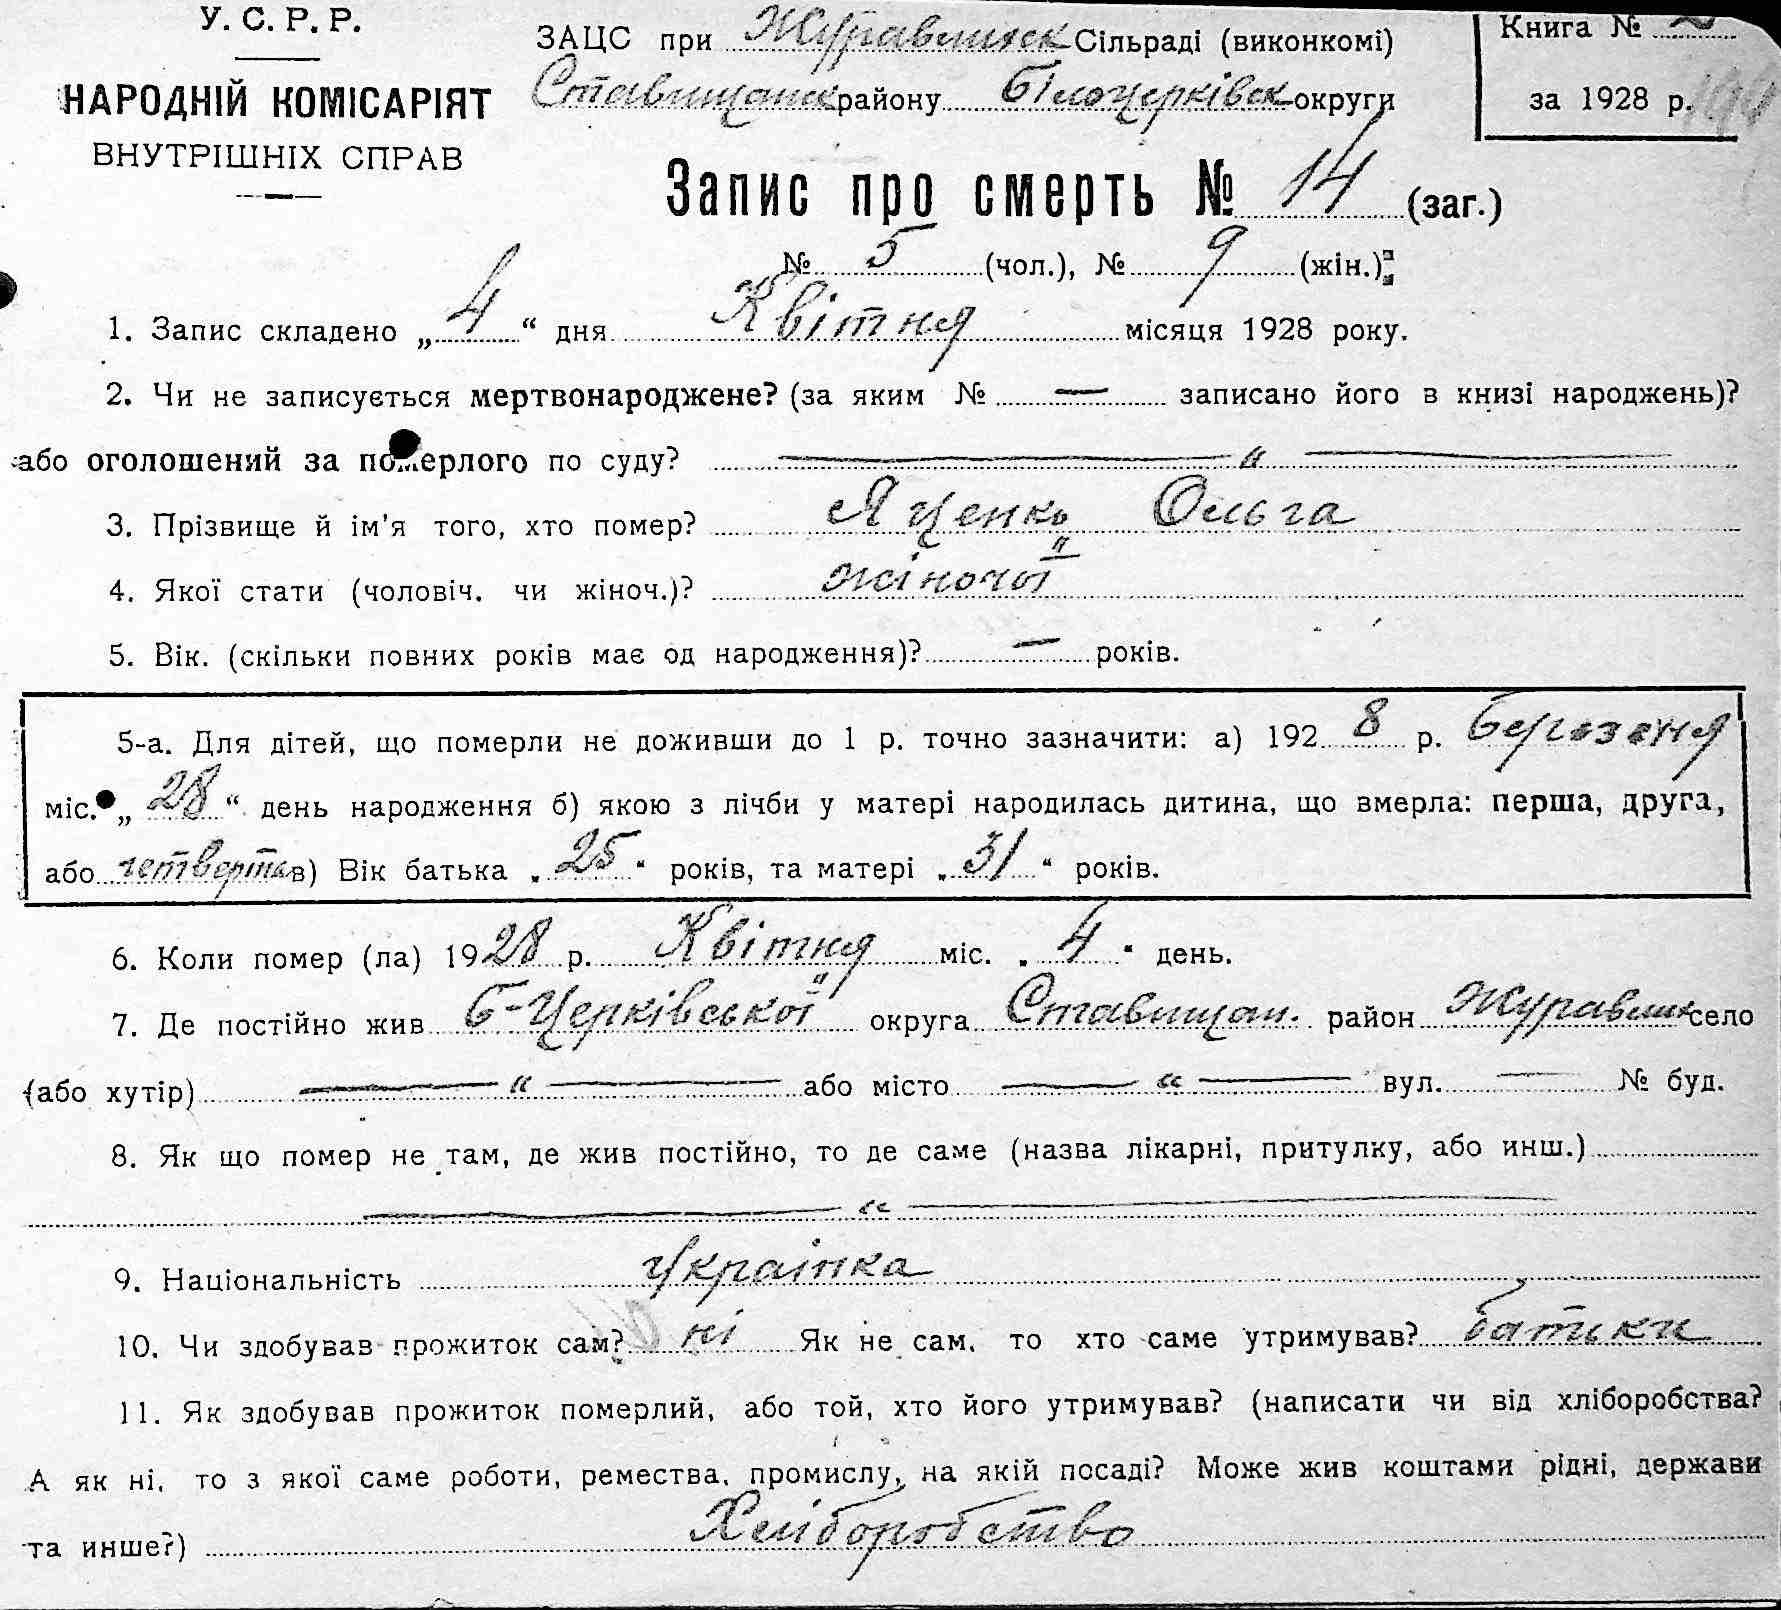 У. С. Р. Р.
НАРОДНІЙ КОМІСАРІЯТ
ВНУТРІШНІХ СПРАВ
ЗАЦС при Журавлиск Сільраді (виконкомі)
Ставищанск району Білоцерківск округи
Книга № 2
за 1928 р.
Запис про смерть № 14 (заг.)
№ 5 (чол.), № 9 (жін.);
1. Запис складено „ 4 “ дня Квітня місяця 1928 року.
2. Чи не записується мертвонароджене? (за яким № — записано його в книзі народжень)?
або оголошений за померлого по суду? — „ —
3. Прізвище й ім'я того, хто помер? Яценко Ольга
4. Якої стати (чоловіч. чи жіноч.)? жіночої
5. Вік. (скільки повних років має од народження)? — років.
5-а. Для дітей, що померли не доживши до 1 р. точно зазначити: а) 192 8 р. Березеня
міс. „ 28 “ день народження б) якою з лічби у матері народилась дитина, що вмерла: перша, друга,
або четверта в) Вік батька „ 25 “ років, та матері „ 31 “ років.
6. Коли помер (ла) 1928 р. Квітня міс. „ 4 “ день.
7. Де постійно жив Б-Церківської округа Ставищан. район село
(або хутір) — „ — або місто — „ — вул. — № буд.
8. Як що помер не там, де жив постійно, то де саме (назва лікарні, притулку, або инш.)
— „ —
9. Національність Українка
10. Чи здобував прожиток сам? ні Як не сам, то хто саме утримував? батьки
11. Як здобував прожиток померлий, або той, хто його утримував? (написати чи від хліборобства?
А як ні, то з якої саме роботи, ремества, промислу, на якій посаді? Може жив коштами рідні, держави
та инше?) Хліборобство